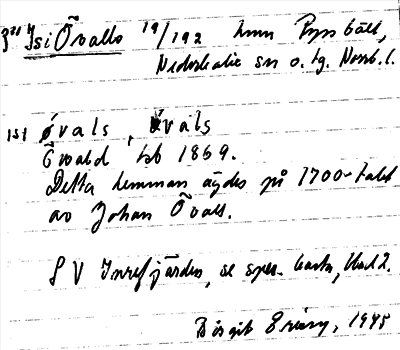 Isi Övalls 19/192 hmn Ryssbält,
Nederkalix sn o. tg. Norrb. l.
övals, övals
Övald hb 1869.
Detta hemman ägdes på 1700-talet
av Johan Övall.
S V Inrefjärden, se spec. karta, blad 2.
Birgit 1945